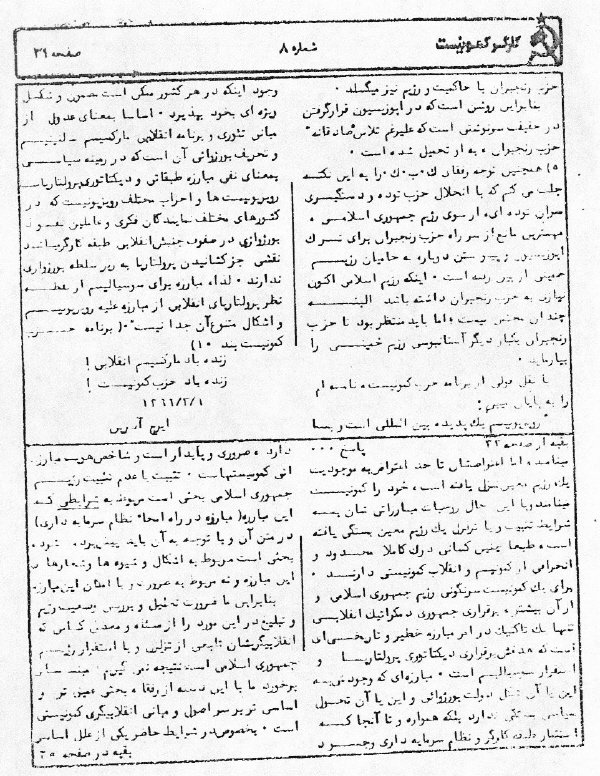 کارگر کمونیست
شماره ۸
صفحه ۳۱
حزب رنجبران با حاکمیت و رژیم نیز میگسلد .
بنابراین روشن است که در اپوزیسیون قرار گرفتن
در حقیقت سرنوشتی است که علیرغم تلاش "صادقانه"
حزب رنجبران ، به او تحمیل شده است .
۵) همچنین توجه رفقای ک.ب.ک. را به این نکته
جلب می کنم که با انحلال حزب توده و دستگیری
سران توده ای، از سوی رژیم جمهوری اسلامی ،
مهمترین مانع از سر راه حزب رنجبران برای ترک
اپوزیسیون و پیوستن دوباره به حامیان رژیم
خمینی از بین رفته است . اینکه رژیم اسلامی اکنون
نیازی به حزب رنجبران داشته باشد البته
چندان محتمل نیست ، اما باید منتظر بود تا حزب
رنجبران یکبار دیگر آستانبوسی رژیم خمینی را
بیازماید .
با نقل قولی از برنامه حزب کمونیست ، نامه ام
را به پایان میبرم :
"رویزیونیسم یک پدیده بین المللی است و بسا
وجود اینکه در هر کشور ممکن است مضمون و شکل
ویژه ای بخود بپذیرد . اساسا بمعنای عدول از
مبانی تئوری و برنامه انقلابی مارکسیسم - لنینیسم
و تحریف بورژوائی آن است که در زمینه سیاسی
بمعنای نفی مبارزه طبقاتی و دیکتاتوری پرولتاریاست
رویزیونیست ها و احزاب مختلف رویزیونیست که در
کشورهای مختلف نمایندگان فکری و عاملین نفوذ
بورژوازی در صفوف جنبش انقلابی طبقه کارگرند
نقشی جز کشانیدن پرولتاریا به زیر سلطه بورژوازی
ندارند . لذا، مبارزه برای سوسیالیسم از نقطه
نظر پرولتاریای انقلابی از مبارزه علیه رویزیونیسم
و اشکال متنوع آن جدا نیست" .( برنامه حزب
کمونیست بند ۱۰)
زنده باد مارکسیسم انقلابی !
زنده باد حزب کمونیست !
۱۳۶۲/۳/۱
ایرج آذرین
بقیه از صفحه ۳۲
پاسخ ...
مینامند ، اما اعتراضشان تا حد اعتراض به موجودیت
یک رژیم معین تنزل یافته است ، خود را کمونیست
مینامند و با این حال روحیات مبارزاتی شان به
شرایط تثبیت و یا تزلزل یک رژیم معین بستگی یافته
است ، طبعا چنین کسانی درک کاملا محدود و
انحرافی از کمونیسم و انقلاب کمونیستی دارند .
برای یک کمونیست سرنگونی رژیم جمهوری اسلامی و
از آن بیشتر ، برقراری جمهوری دمکراتیک انقلابی
تنها یک تاکتیک در امر مبارزه خطیر و تاریخی ای
است که هدفش برقراری دیکتاتوری پرولتاریا و
استقرار سوسیالیسم است . مبارزه ای که وجودش به
این یا آن شکل دولت بورژوائی و این یا آن تحول
سیاسی بستگی ندارد بلکه همواره و تا آنجا که
استثمار طبقه کارگر و نظام سرمایه داری وجود
دارد ، ضروری و پایدار است و شاخص هویت مبارز
اتی کمونیستهاست . تثبیت یا عدم تثبیت رژیم
جمهوری اسلامی بحثی است مربوط به شرایطی که
این مبارزه ( مبارزه در راه امحاء نظام سرمایه داری)
در متن آن و با توجه به آن باید پیش برده شود ،
بحثی است مربوط به اشکال و شیوه ها و شعارهای
این مبارزه و نه مربوط به ضرورت و یا امکان این مبارزه
بنابراین ما ضرورت تحلیل و بررسی وضعیت رژیم
و تبلیغ در این مورد را از مسئله و معضل کسانی که
انقلابیگریشان تابعی از تزلزل و یا استقرار رژیم
جمهوری اسلامی است نتیجه نمی گیریم .
برخورد ما با این دسته از رفقا ، بحثی عمیق تر و
اساسی تر بر سر اصول و مبانی انقلابیگری کمونیستی
است . بخصوص در شرایط حاضر یکی از علل اساسی
بقیه در صفحه ۲۵